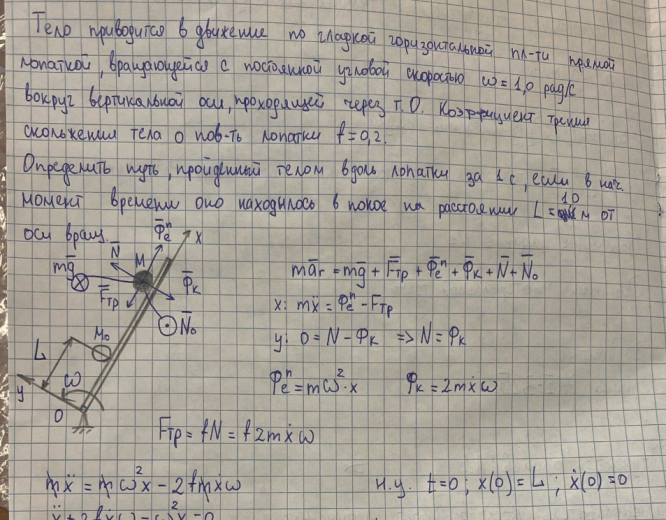 Тело приводится в движение по гладкой горизонтальной пл-ти прямой
лопаткой, вращающейся с постоянной угловой скоростью ω = 1,0 рад/с
вокруг вертикальной оси, проходящей через т. О. Коэффициент трения
скольжения тела о пов-ть лопатки f = 0,2.
Определить путь, пройденный телом вдоль лопатки за 1 с, если в нач.
момент времени оно находилось в покое на расстоянии L = 10 м от
оси вращ.
N̄
Φ̄ₑⁿ
x
mḡ
M
Φ̄ₖ
F̄тр
N̄₀
M₀
L
ω
y
O
māᵣ = mḡ + F̄тр + Φ̄ₑⁿ + Φ̄ₖ + N̄ + N̄₀
x: mẍ = Φₑⁿ - Fтр
y: 0 = N - Φₖ => N = Φₖ
Φₑⁿ = mω²·x Φₖ = 2mẋω
Fтр = fN = f2mẋω
mẍ = mω²x - 2fmẋω
н.у. t=0; x(0) = L; ẋ(0) = 0
ẍ + 2fẋω - ω²x = 0